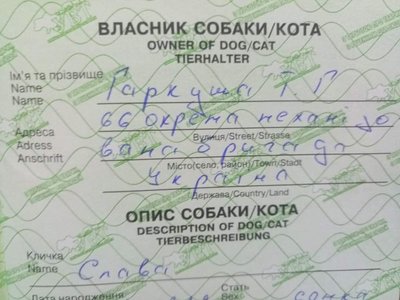 ВЛАСНИК СОБАКИ/КОТА
OWNER OF DOG/CAT
TIERHALTER
Ім'я та прізвище
Name Гаркуша Т. Г
Name
66 окрема механізо
Адреса Вулиця/Street/Strasse
Adress вана бригада
Anschrift Місто(село, район)/Town/Stadt
Україна
Держава/Country/Land
ОПИС СОБАКИ/КОТА
DESCRIPTION OF DOG/CAT
TIERBESCHREIBUNG
Кличка
Name Слава
Дата народження Стать
Sex